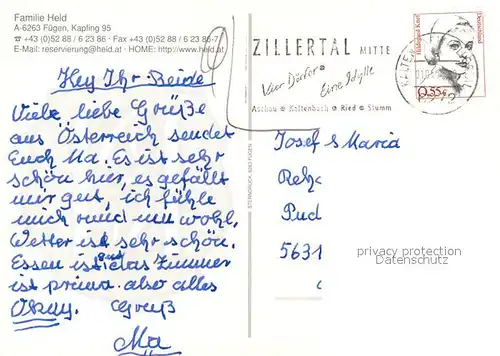 Familie Held
A-6263 Fügen, Kapfing 95
☎ +43 (0)52 88 / 6 23 86 · Fax +43 (0)52 88 / 6 23 86-7
E-Mail: reservierung@held.at · HOME: http://www.held.at
Hey Ihr Beide
Viele liebe Grüße
aus Österreich sendet
Euch Ma. Es ist sehr
schön hier, es gefällt
mir gut, ich fühle
mich rund um wohl.
Wetter ist sehr schön.
Essen ist gut das Zimmer
ist prima. also alles
Okay. Gruß
Ma
STERNDRUCK, 6263 FÜGEN
ZILLERTAL MITTE
Vier Dörfer
Eine Idylle
Aschau Kaltenbach Ried Stumm
Hildegard Knef
Deutschland
0,55€
Josef & Maria
Pud
5631
privacy protection
Datenschutz